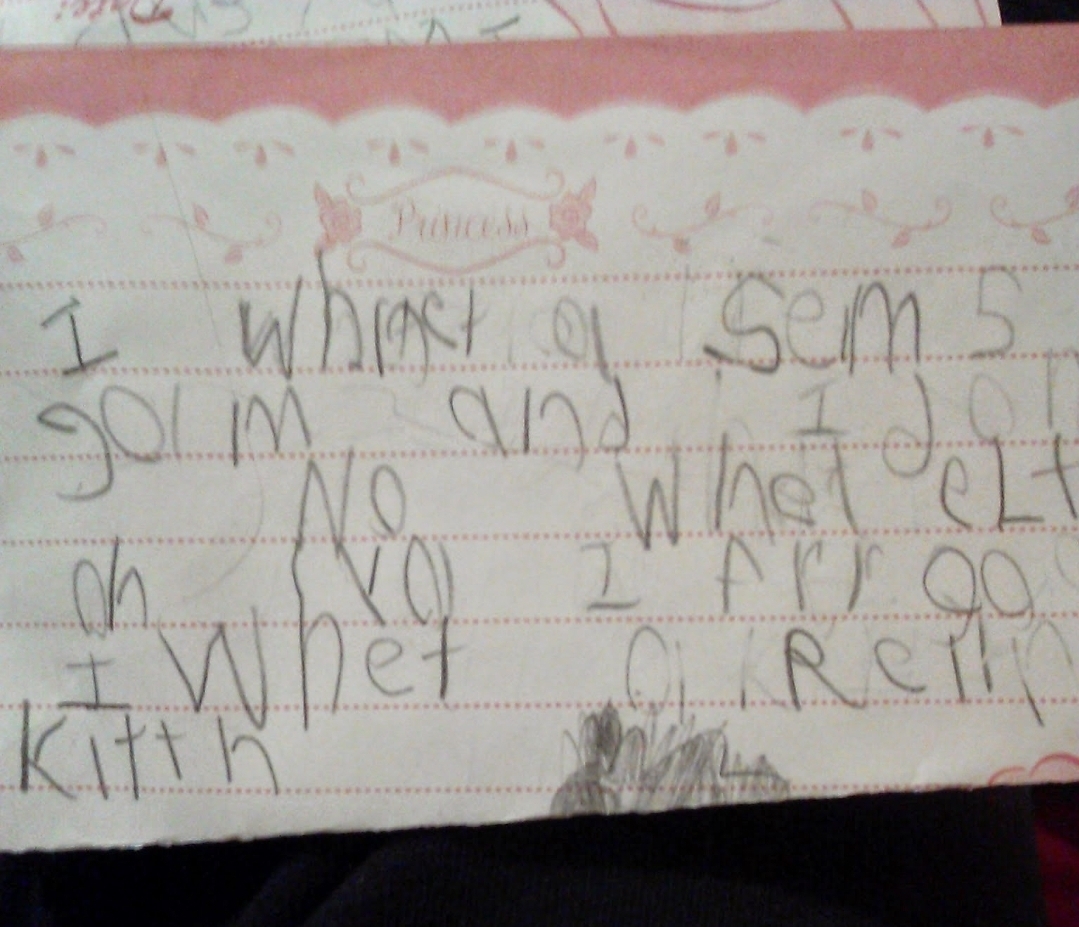 Princess
I whnet a Sem 5
golm and I dol
No whet eLt
oh ya I Frr go
I Whet a Retln
Kitth